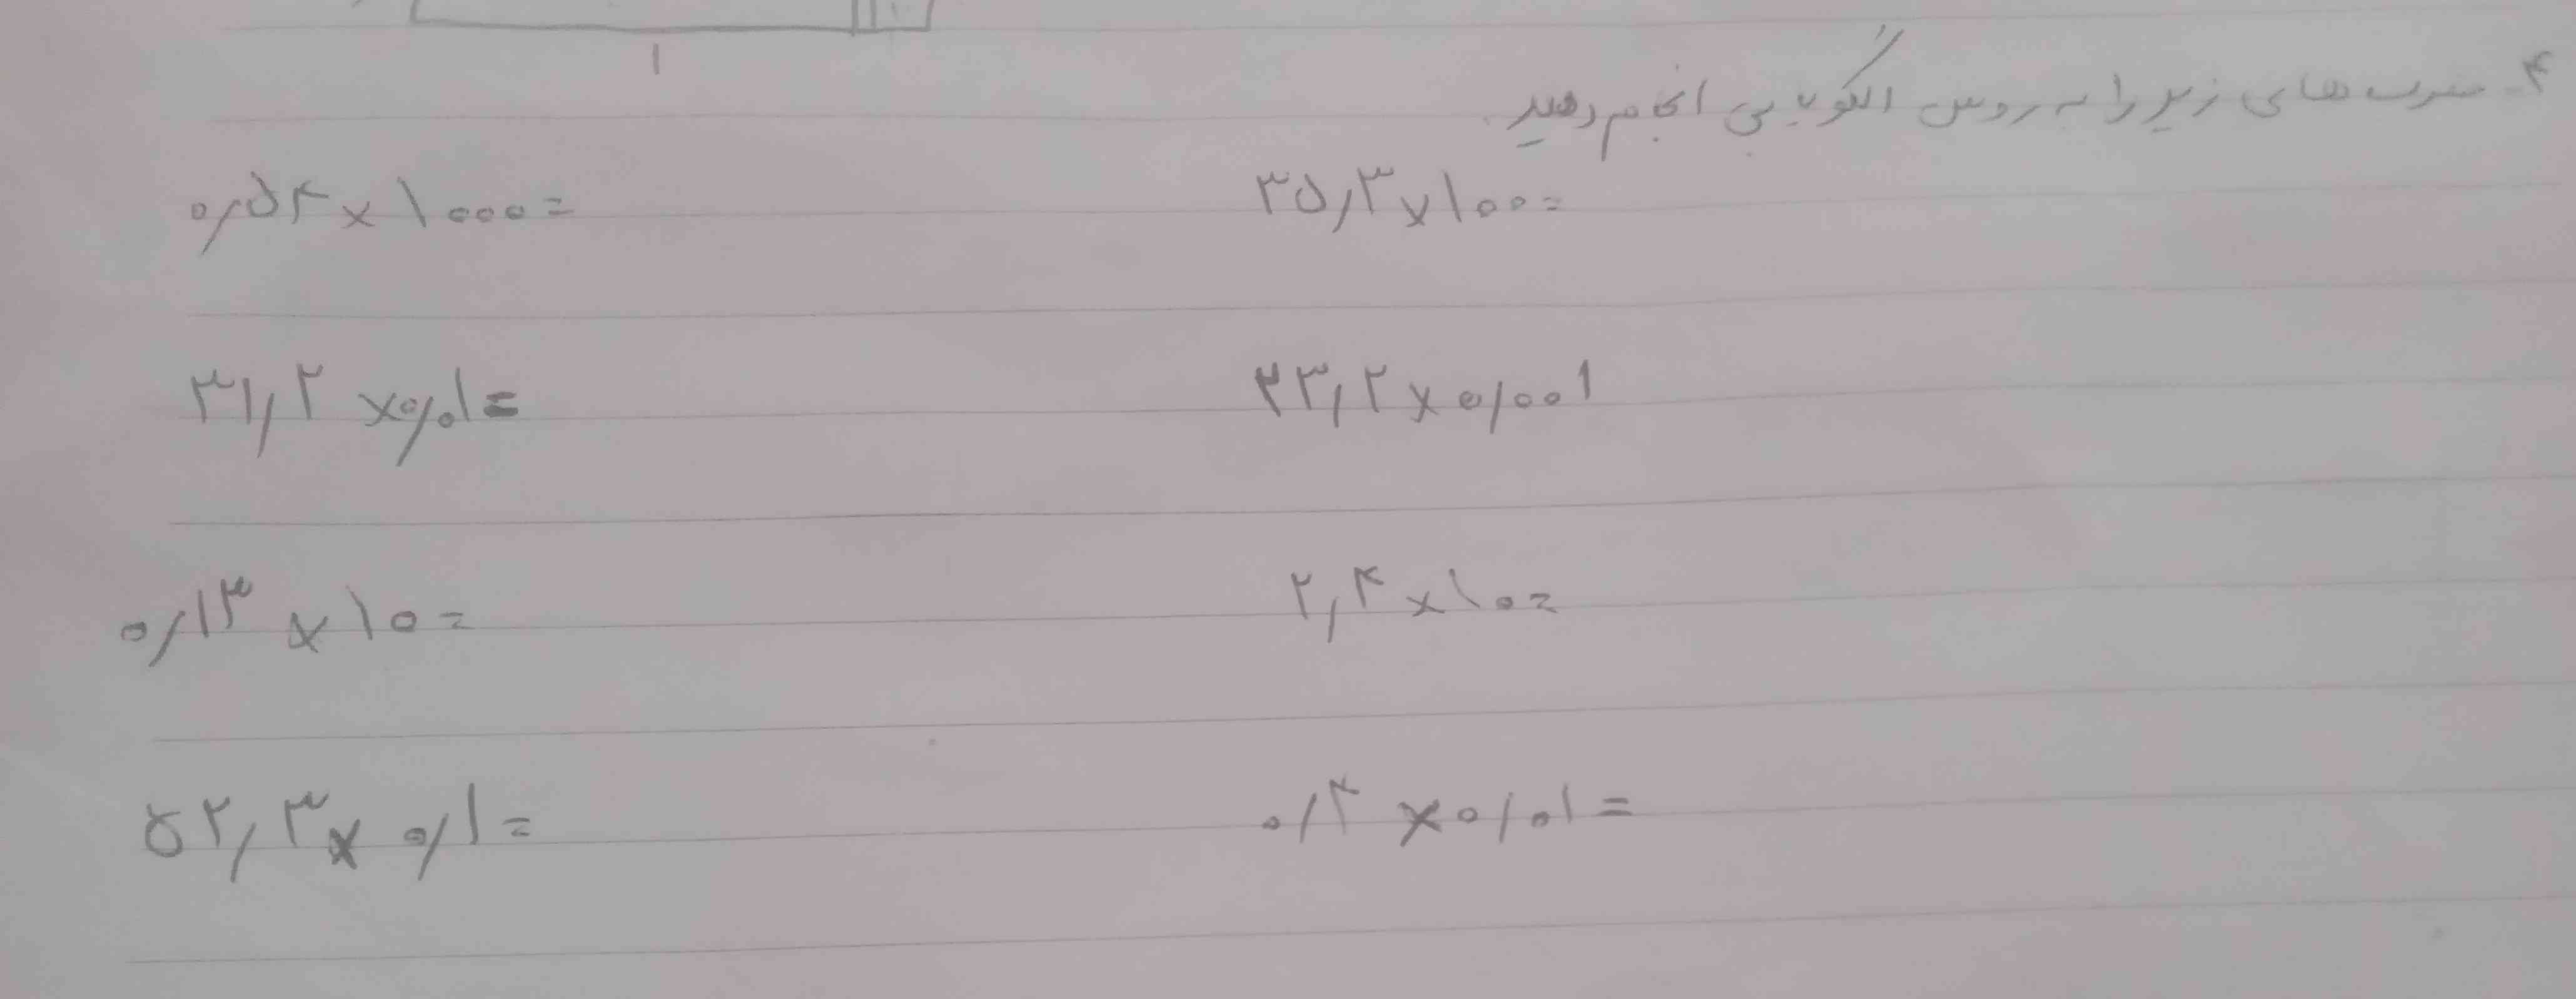 ۱
۴- ضرب های زیر را به روش الگویابی انجام دهید.
۰٫۵۴ × ۱۰۰۰ = ۳۵٫۳ × ۱۰۰ =
۳۱٫۲ × ۰٫۰۱ = ۲۳٫۲ × ۰٫۰۰۱
۰٫۱۳ × ۱۰ = ۲٫۴ × ۱۰ =
۵۲٫۳ × ۰٫۱ = ۰٫۴ × ۰٫۰۱ =